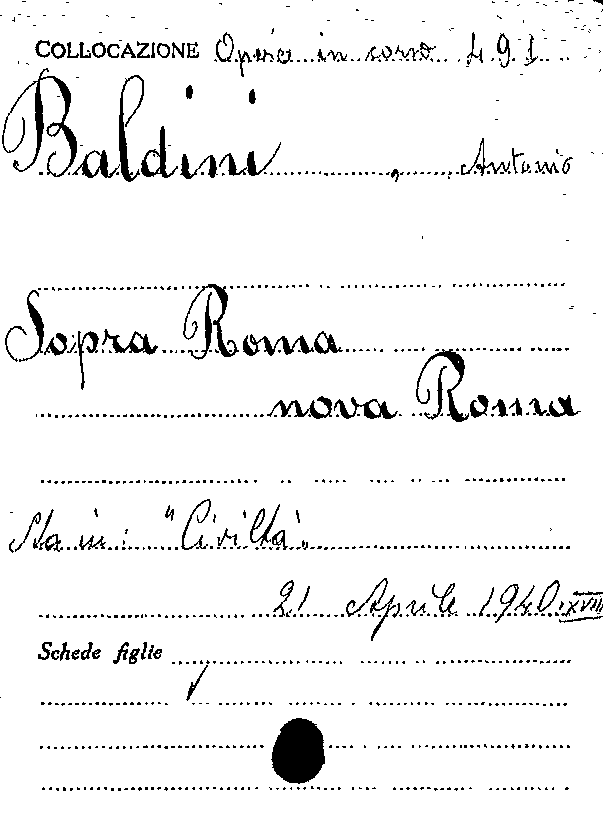 COLLOCAZIONE Opere in corso 491
Baldini, Antonio
Sopra Roma
nova Roma
Sta in: "Civiltà"
21 Aprile 1940 XVIII
Schede figlie